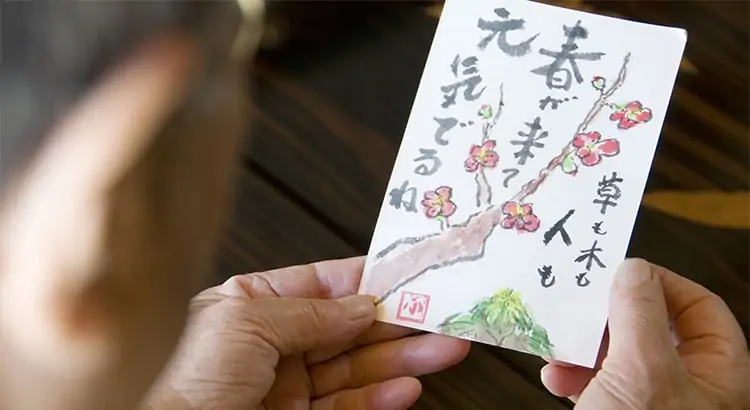 春が来て
元
気でるね
草も木も
人も